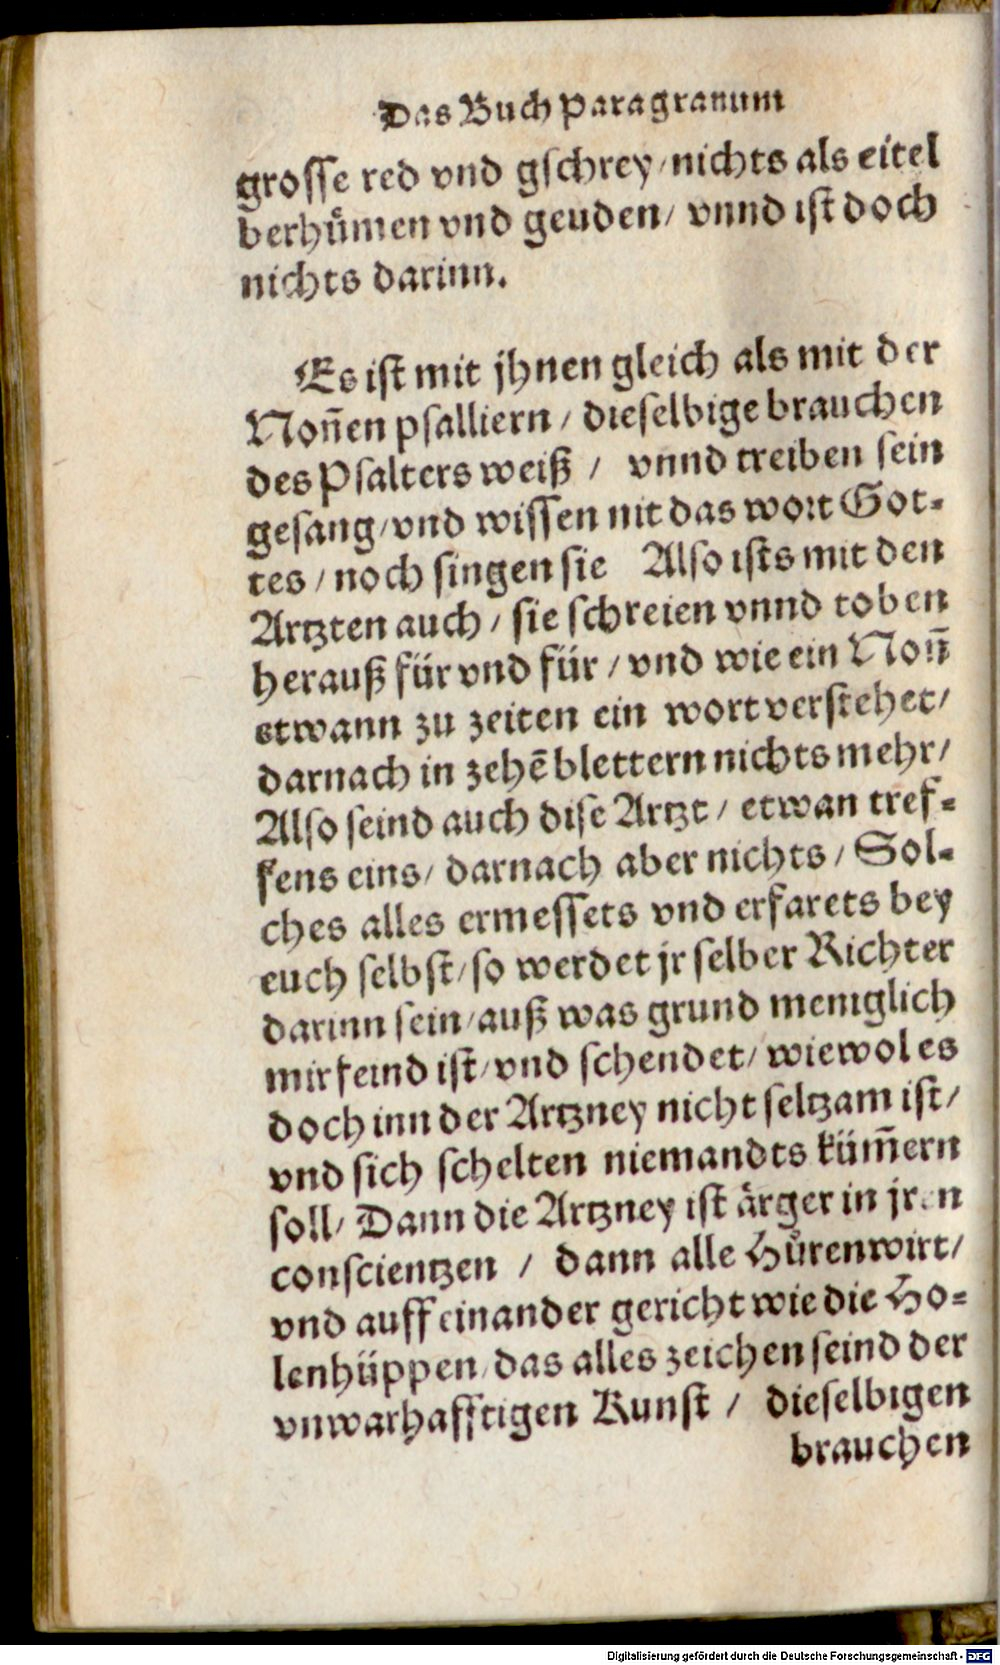 Das Buch Paragranum
grosse red vnd gschrey/nichts als eitel
berhuͤmen vnd geuden/ vnnd ist doch
nichts darinn.
Es ist mit jhnen gleich als mit der
Noñen psalliern / dieselbige brauchen
des Psalters weiß / vnnd treiben sein
gesang/vnd wissen nit das wort Got-
tes / noch singen sie Also ists mit den
Artzten auch / sie schreien vnnd toben
herauß für vnd für / vnd wie ein Noñ
etwann zu zeiten ein wort verstehet/
darnach in zehē blettern nichts mehr/
Also seind auch dise Artzt / etwan tref-
fens eins/ darnach aber nichts / Sol-
ches alles ermessets vnd erfarets bey
euch selbst/so werdet jr selber Richter
darinn sein/auß was grund meniglich
mir feind ist/vnd schendet/ wiewol es
doch inn der Artzney nicht seltzam ist/
vnd sich schelten niemandts küm̃ern
soll/ Dann die Artzney ist aͤrger in jren
conscientzen / dann alle Huͤrenwirt/
vnd auff einander gericht wie die Ho-
lenhüppen/das alles zeichen seind der
vnwarhafftigen Kunst / dieselbigen
brauchen
Digitalisierung gefördert durch die Deutsche Forschungsgemeinschaft - DFG